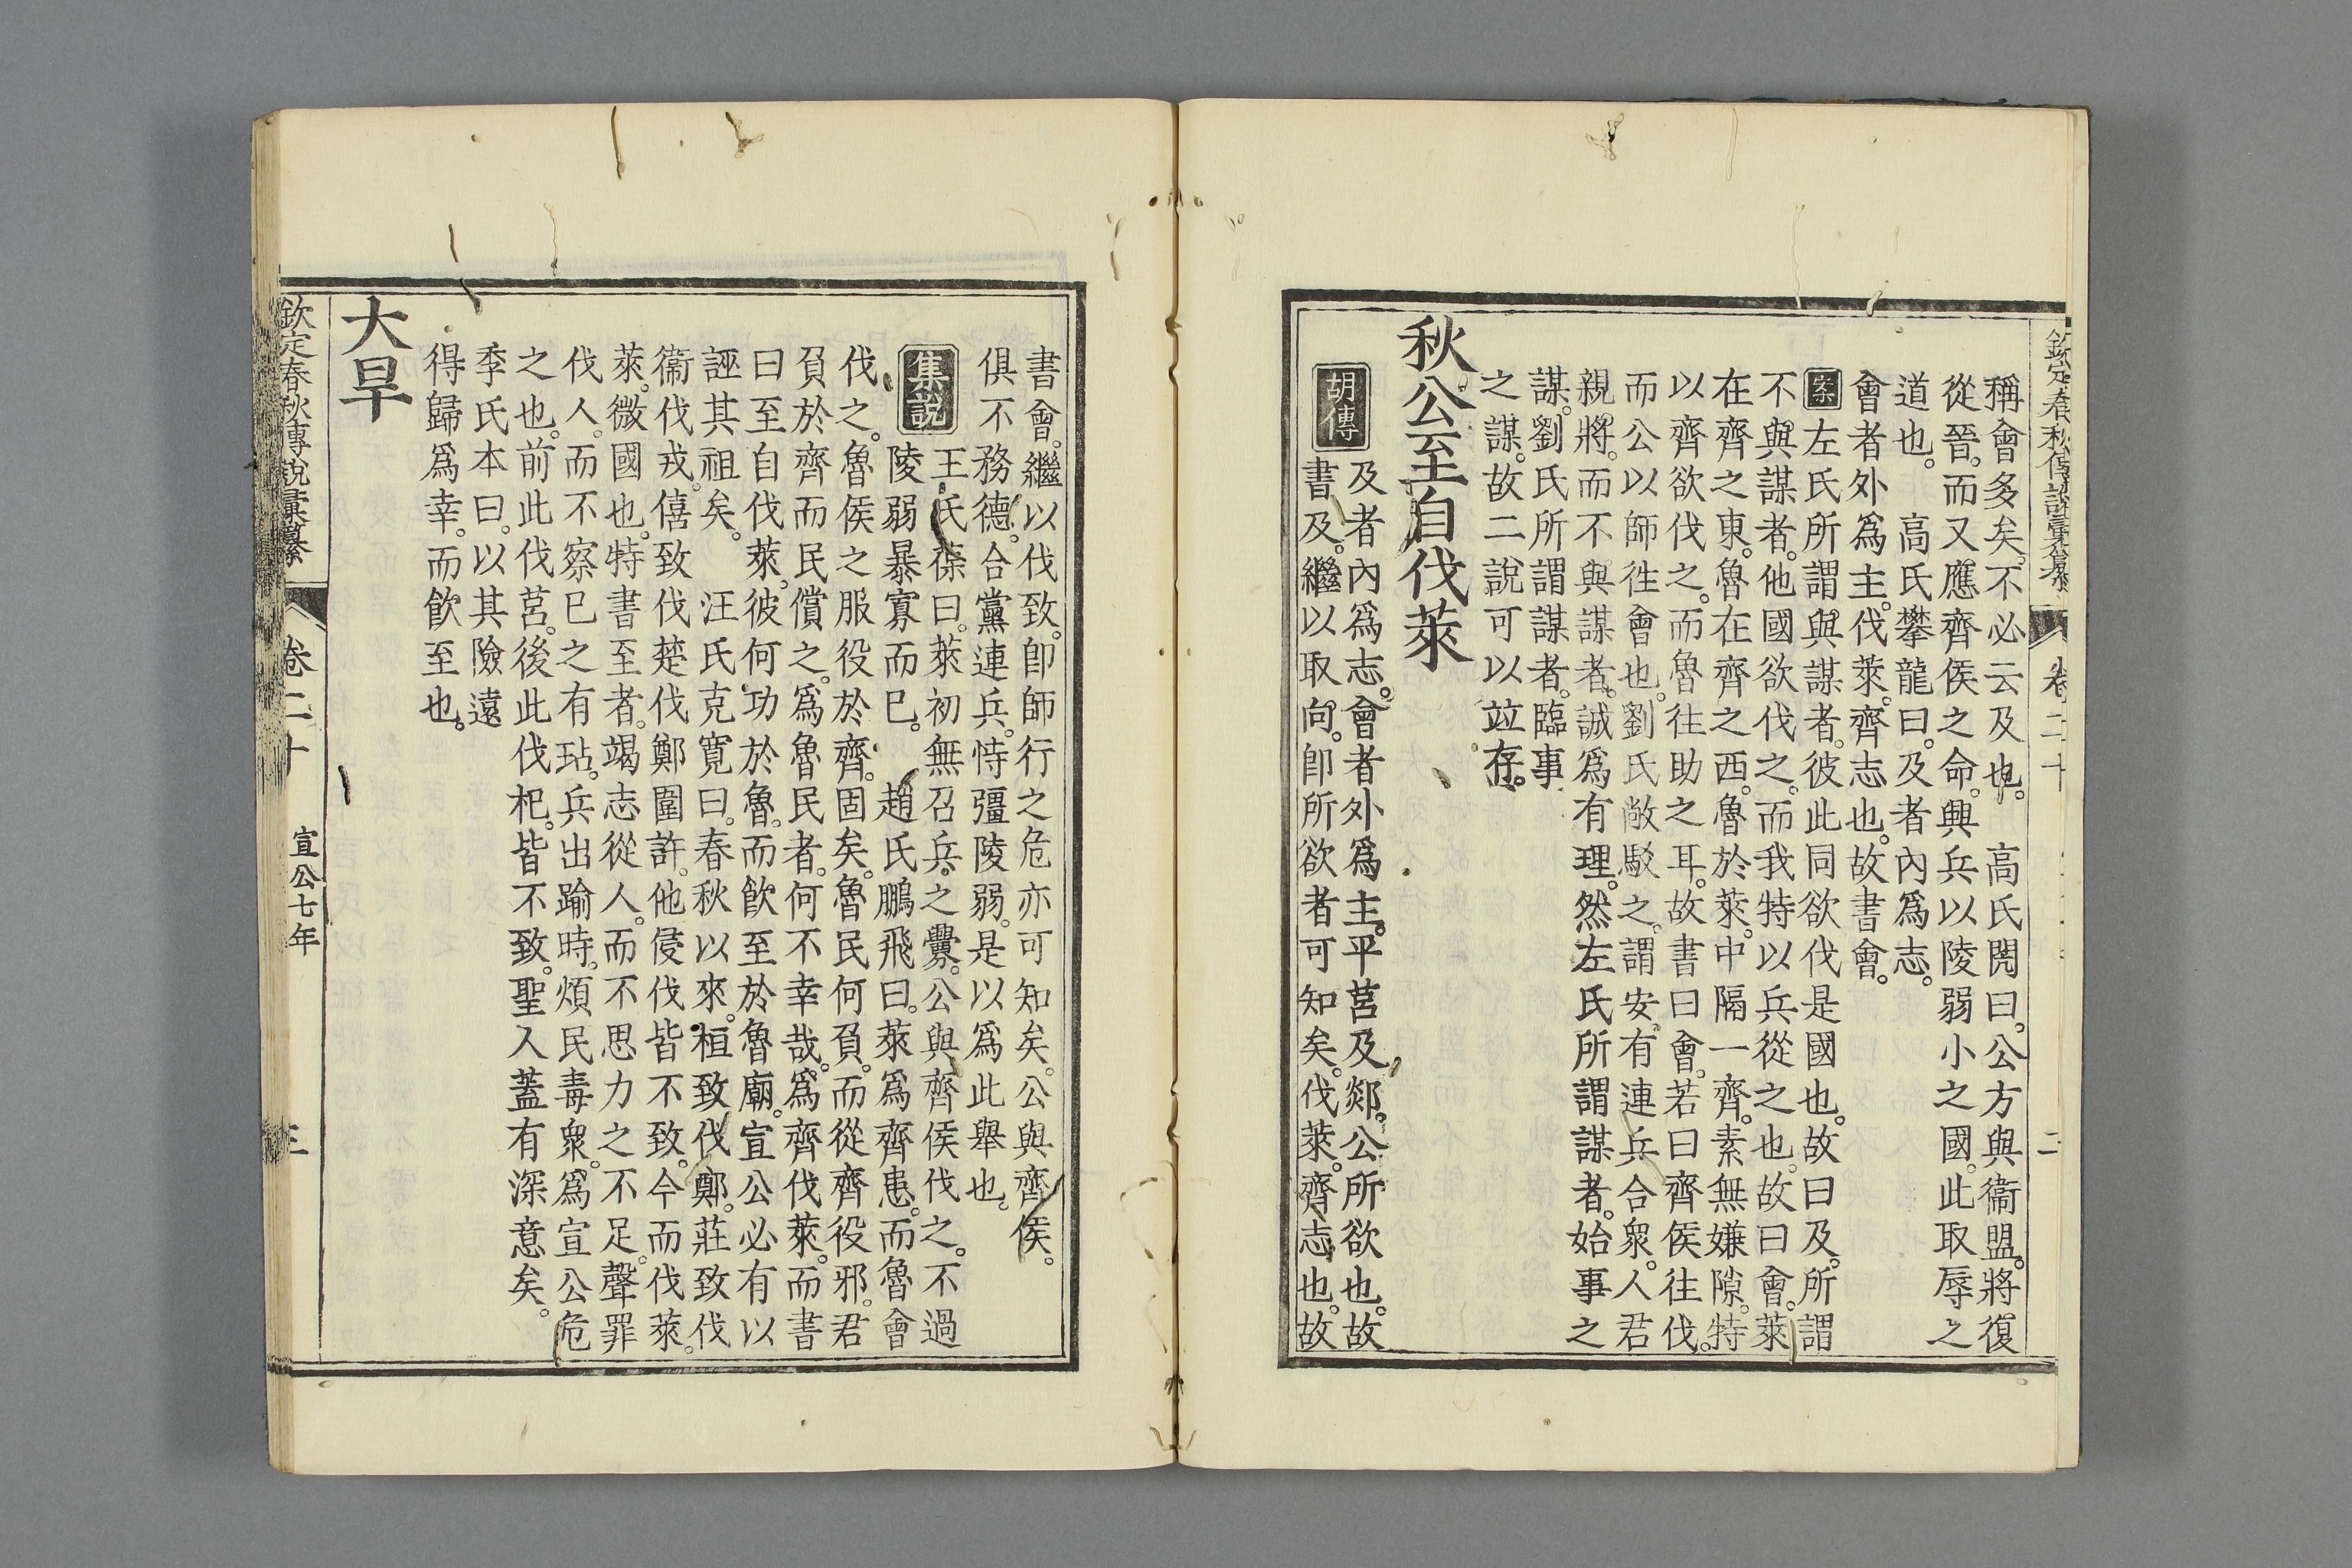 欽定春秋傳說彙纂 卷二十 二
稱會多矣。不必云及也。 高氏閌曰。公方與衞盟。將復
從晉。而又應齊侯之命。興兵以陵弱小之國。此取辱之
道也。 高氏攀龍曰。及者內爲志。
會者外爲主。伐萊。齊志也。故書會。
案左氏所謂與謀者。彼此同欲伐是國也。故曰及。所謂
不與謀者。他國欲伐之。而我特以兵從之也。故曰會。萊
在齊之東。魯在齊之西。魯於萊。中隔一齊。素無嫌隙。特
以齊欲伐之。而魯往助之耳。故書曰會。若曰齊侯往伐。
而公以師徃會也。劉氏敞駁之。謂安有連兵合衆。人君
親將。而不與謀者。誠爲有理。然左氏所謂謀者。始事之
謀。劉氏所謂謀者。臨事
之謀。故二說可以竝存。
秋公至自伐萊
胡傳 及者內爲志。會者外爲主。平莒及郯。公所欲也。故
書及。繼以取向。卽所欲者可知矣。伐萊。齊志也。故
書會。繼以伐致。卽師行之危亦可知矣。公與齊侯。
俱不務德。合黨連兵。恃彊陵弱。是以爲此舉也。
集說 王氏葆曰。萊初無召兵之釁。公與齊侯伐之。不過
陵弱暴寡而已。 趙氏鵬飛曰。萊爲齊患。而魯會
伐之。魯侯之服役於齊。固矣。魯民何負。而從齊役邪。君
負於齊而民償之。爲魯民者。何不幸哉。爲齊伐萊。而書
曰至自伐萊。彼何功於魯。而飮至於魯廟。宣公必有以
誣其祖矣。 汪氏克寬曰。春秋以來。桓致伐鄭。莊致伐
衞伐戎。僖致伐楚伐鄭圍許。他侵伐皆不致。今而伐萊。
萊。微國也。特書至者。竭志從人。而不思力之不足。聲罪
伐人。而不察已之有玷。兵出踰時。煩民毒衆。爲宣公危
之也。前此伐莒。後此伐杞。皆不致。聖人蓋有深意矣。
季氏本曰。以其險遠
得歸爲幸。而飮至也。
大旱
欽定春秋傳說彙纂 卷二十 宣公七年 三